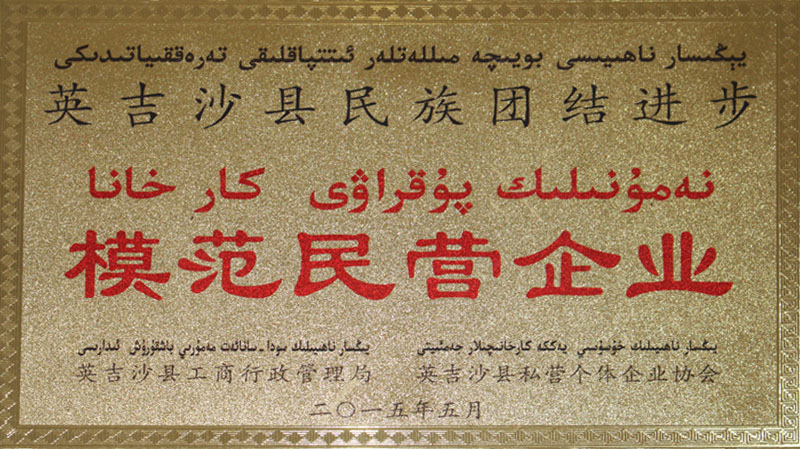 يېڭىسار ناھىيىسى بويىچە مىللەتلەر ئىتتىپاقلىقى تەرەققىياتىدىكى
英吉沙县民族团结进步
نەمۇنىلىك پۇقراۋى كار خانا
模范民营企业
يېڭىسار ناھىيىلىك سودا-سانائەت مەمۇرىي باشقۇرۇش ئىدارىسى
يېڭىسار ناھىيىلىك خۇسۇسىي يەككە كارخانىچىلار جەمئىيىتى
英吉沙县工商行政管理局
英吉沙县私营个体企业协会
二〇一五年五月